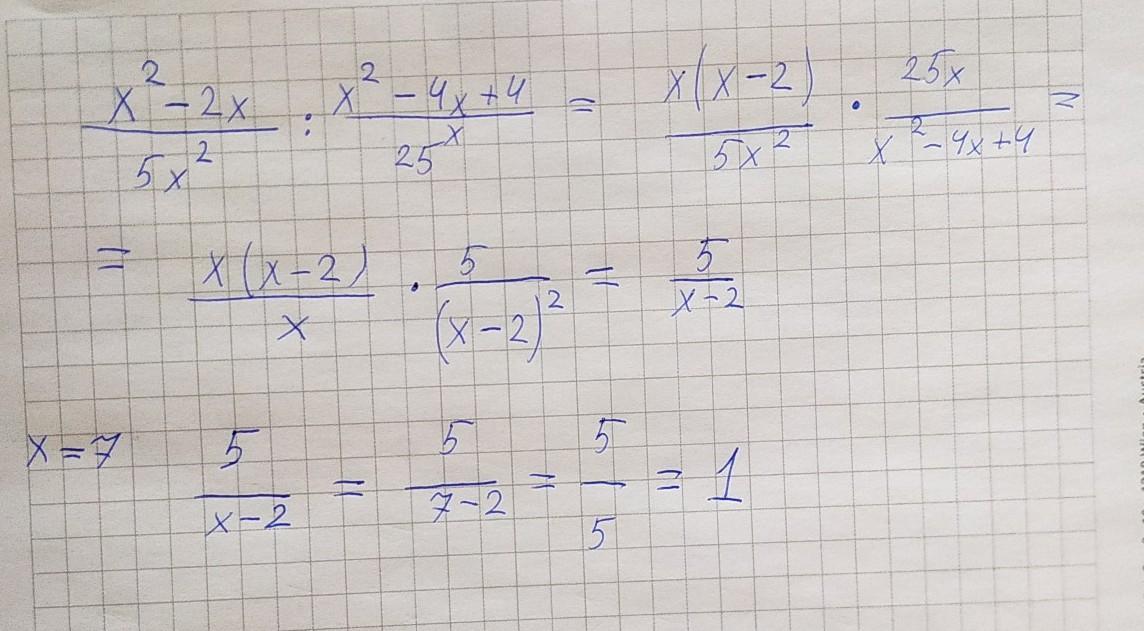 (x² - 2x)/(5x²) : (x² - 4x + 4)/(25x) = (x(x - 2))/(5x²) · (25x)/(x² - 4x + 4) =
= (x(x - 2))/x · 5/(x - 2)² = 5/(x - 2)
x = 7 5/(x - 2) = 5/(7 - 2) = 5/5 = 1